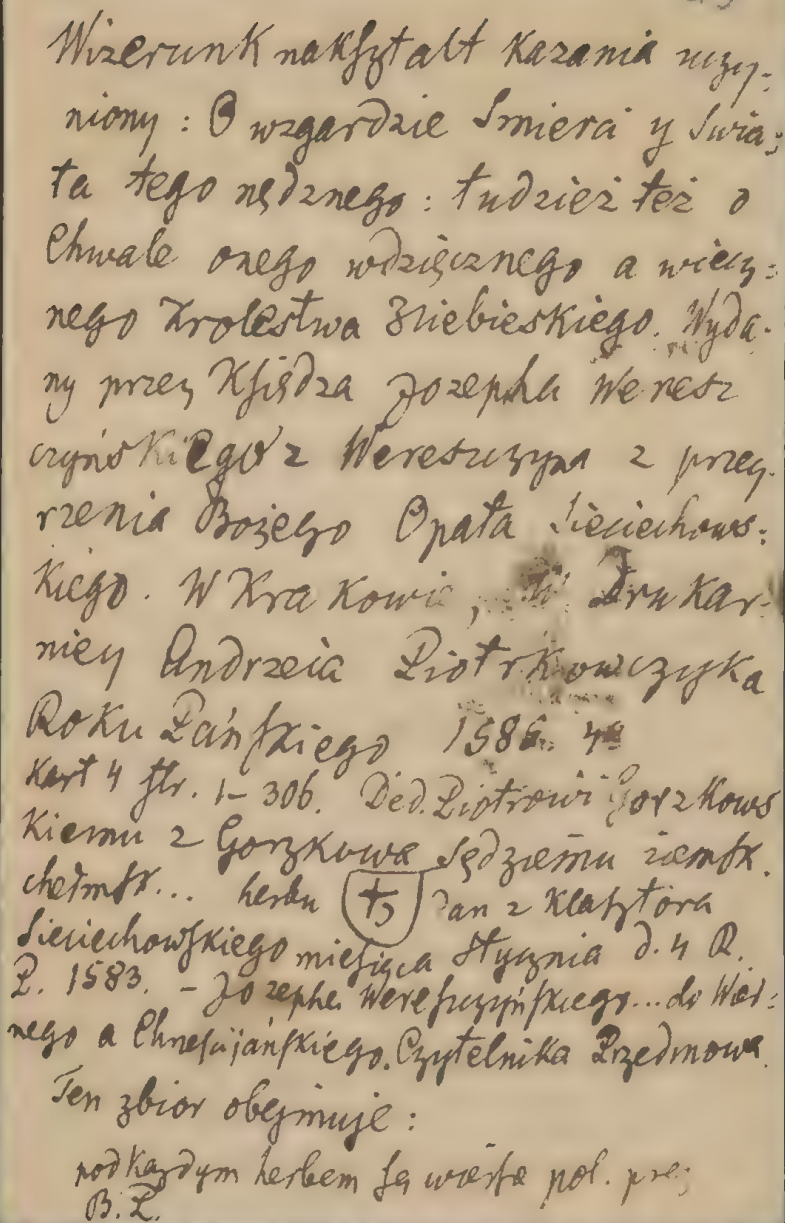 Wizerunk nakſztalt Kazania uczy:
niony: O wzgardzie Smierci y Swia:
ta tego nędznego: tudzież też o
Chwale onego wdzięcznego a wiecz:
nego Krolestwa Niebieskiego. Wyda-
ny przez Kſiędza Jozepha Weresz
czyńskiego z Wereszczyna z przey-
rzenia Bożego Opata Sieciechows:
Kiego. W Krakowie, W Drukar-
niey Andrzeia Piotrkowczyka
Roku Pańſkiego 1585. 4º
Kart 4 ſtr. 1–306. Ded. Piotrowi Gorzkows
Kiemu z Gorzkowa Sędziemu ziemſk.
chełmſk... herbu Dan z Klaſztora
Sieciechowſkiego mieſiąca Stycznia d. 4 R.
P. 1583. – Jozepha Wereſzczyńſkiego... do Wier:
nego a Chreſcijańſkiego Czytelnika Przedmowa.
Ten zbior obejmuje:
pod Kazdym herbem ſą wierſze pol. przez
B. P.